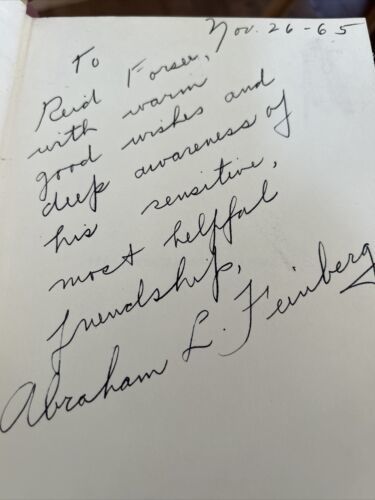 Nov. 26-65
To
Reid Forsee,
with warm
good wishes and
deep awareness of
his sensitive,
most helpful
friendship,
Abraham L. Feinberg